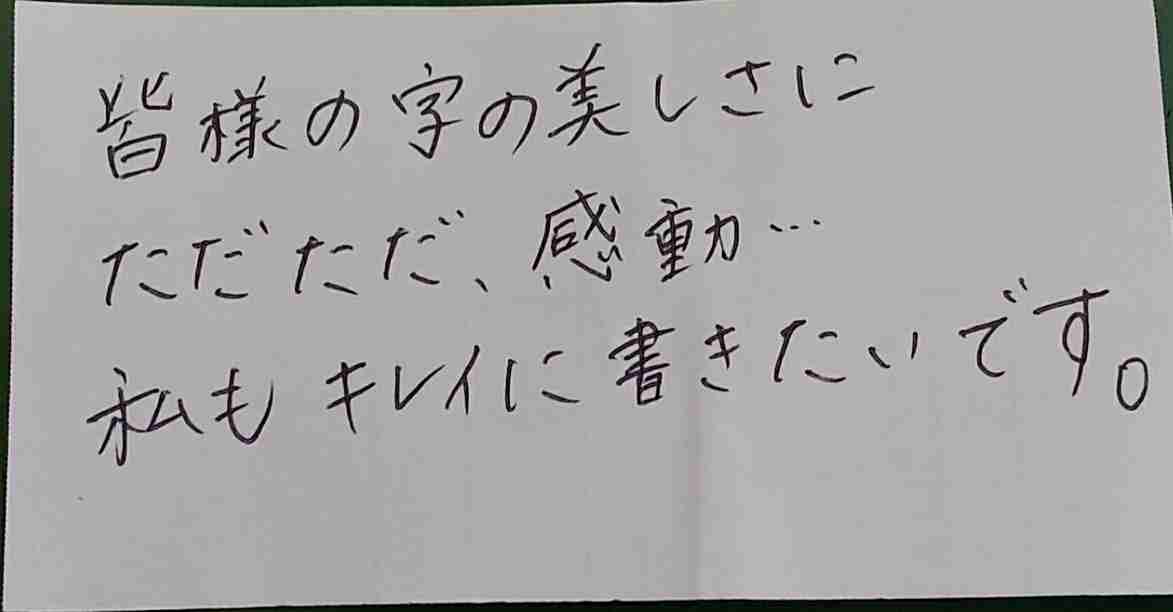 皆様の字の美しさに
ただただ、感動…
私もキレイに書きたいです。